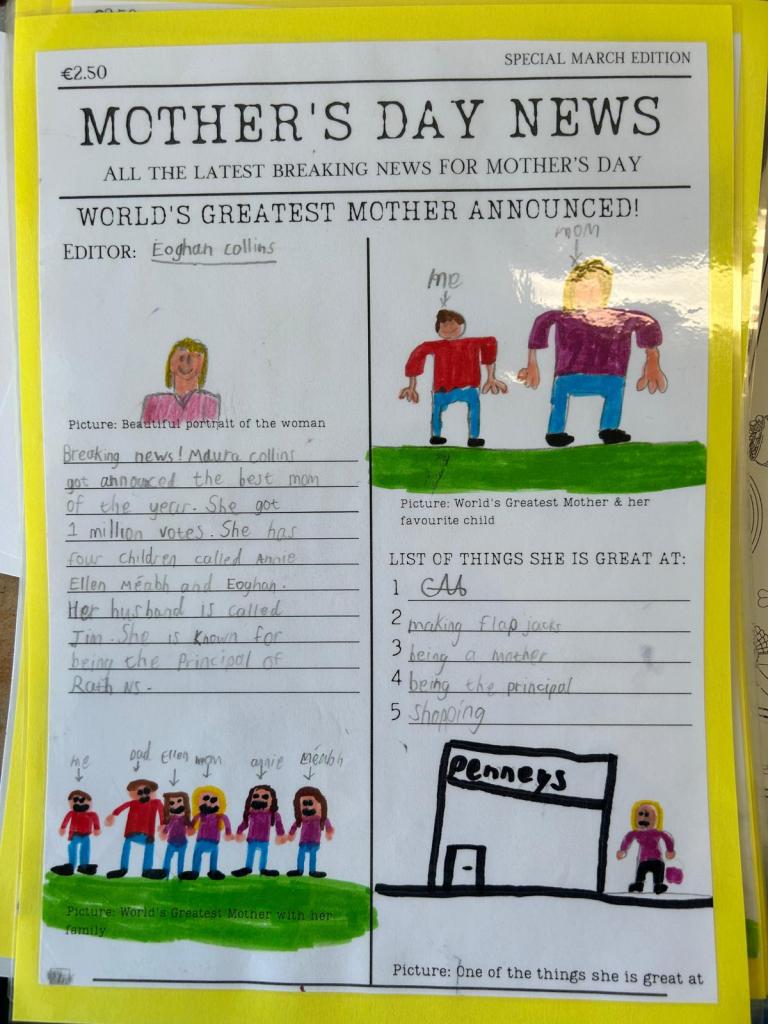 €2.50
SPECIAL MARCH EDITION
MOTHER'S DAY NEWS
ALL THE LATEST BREAKING NEWS FOR MOTHER'S DAY
WORLD'S GREATEST MOTHER ANNOUNCED!
EDITOR: Eoghan Collins
Picture: Beautiful portrait of the woman
Breaking news! Maura Collins
got announced the best mom
of the year. She got
1 million votes. She has
four children called Annie
Ellen Méabh and Eoghan.
Her husband is called
Jim. She is known for
being the Principal of
Rath NS.
me
dad
Ellen
mom
annie
Méabh
Picture: World's Greatest Mother with her
family
me
mom
Picture: World's Greatest Mother & her
favourite child
LIST OF THINGS SHE IS GREAT AT:
1
2 making flap jacks
3 being a mother
4 being the principal
5 shopping
Penneys
Picture: One of the things she is great at